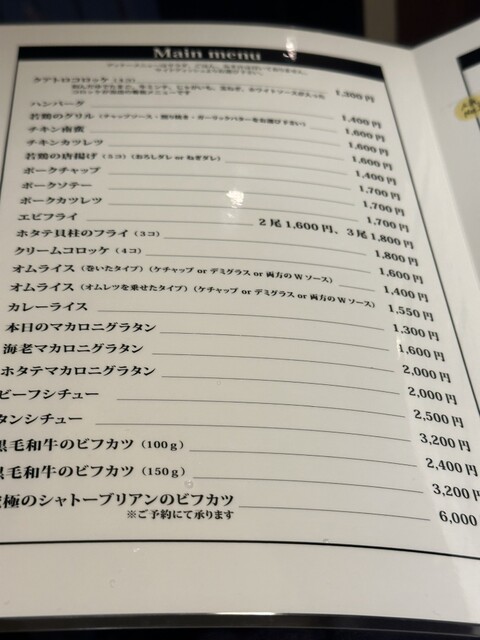 Main menu
クアトロコロッケ（4コ） 1,200円
ハンバーグ 1,400円
若鶏のグリル（ケチャップソース・照り焼き・ガーリックバターをお選び下さい） 1,600円
チキン南蛮 1,600円
チキンカツレツ 1,600円
若鶏の唐揚げ（5コ）（おろしダレ or ねぎダレ） 1,400円
ポークチャップ 1,700円
ポークソテー 1,700円
ポークカツレツ 1,700円
エビフライ 2尾 1,600円、3尾 1,800円
ホタテ貝柱のフライ（3コ） 1,800円
クリームコロッケ（4コ） 1,600円
オムライス（巻いたタイプ）（ケチャップ or デミグラス or 両方のWソース） 1,400円
オムライス（オムレツを乗せたタイプ）（ケチャップ or デミグラス or 両方のWソース） 1,550円
カレーライス 1,300円
本日のマカロニグラタン 1,600円
海老マカロニグラタン 2,000円
ホタテマカロニグラタン 2,000円
ビーフシチュー 2,500円
タンシチュー 3,200円
黒毛和牛のビフカツ（100g） 2,400円
黒毛和牛のビフカツ（150g） 3,200円
究極のシャトーブリアンのビフカツ 6,000
※ご予約にて承ります